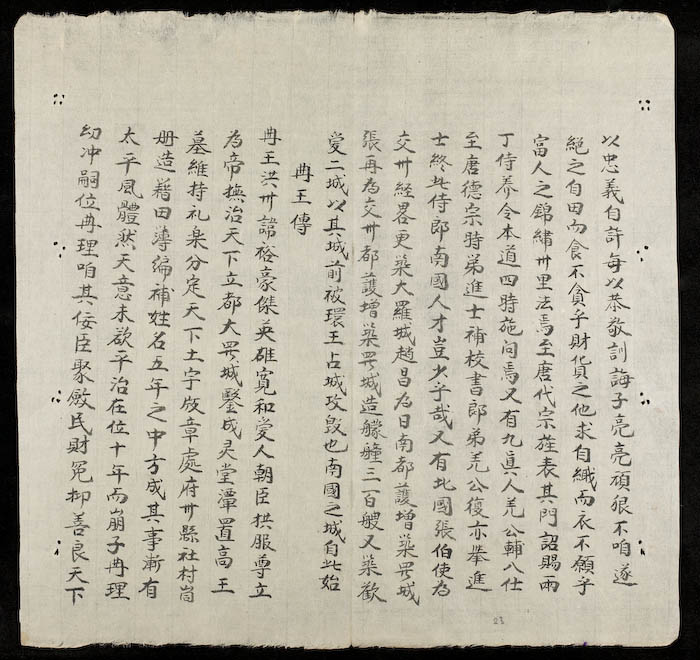 以忠義自許每以恭敬訓誨子亮亮頑狠不咱遂
絕之自田而食不貪乎財貨之他求自織而衣不願乎
富人之錦繡卅里法焉至唐代宗旌表其門詔賜兩
丁侍養令本道四時施问焉又有九眞人羌公輔八仕
至唐德宗時苐進士補校書郎弟羌公復亦举進
士終此侍郎南國人才豈少乎哉又有北國張伯使為
交卅經畧更築大羅城趙昌為日南都護增築罗城
張再為交卅都護增築罗城造艨艟三百艘又築歡
愛二城以其城前被環王占城攻毀也南國之城自此始
冉王傳
冉王洪卅諱裕豪傑英雄寬和爱人朝臣拱服尊立
為帝撫治天下立都大罗城鑿成灵堂潭置高王
墓維持礼楽分定天下土字版章處府卅縣社村峝
册造籍田簿编補姓名五年之中方成其事漸有
太平風體然天意未欲平治在位十年而崩子冉理
幼冲嗣位冉理咱其佞臣聚斂民財冤抑善良天下
23